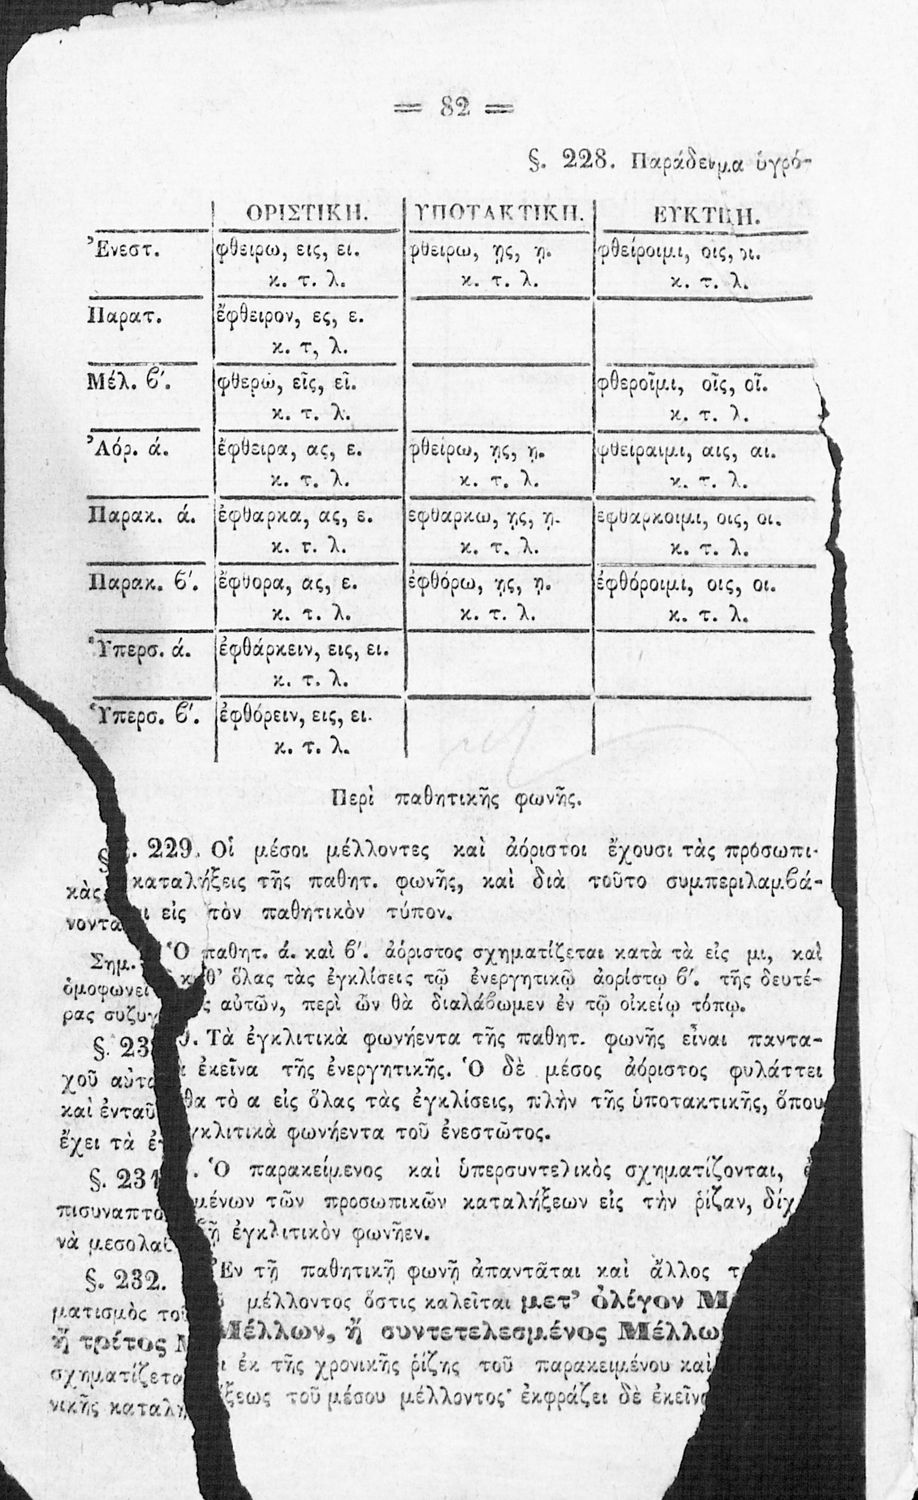 = 82 =
§. 228. Παράδειγμα ὑγρό-
ΟΡΙΣΤΙΚΗ. ΥΠΟΤΑΚΤΙΚΗ. ΕΥΚΤΙΚΗ.
Ἐνεστ. φθείρω, εις, ει. φθείρω, ῃς, ῃ. φθείροιμι, οις, οι.
κ. τ. λ. κ. τ. λ. κ. τ. λ.
Παρατ. ἔφθειρον, ες, ε.
κ. τ, λ.
Μέλ. β΄. φθερῶ, εῖς, εῖ. φθεροῖμι, οῖς, οῖ.
κ. τ. λ. κ. τ. λ.
Ἀόρ. ά. ἔφθειρα, ας, ε. φθείρω, ῃς, ῃ. φθείραιμι, αις, αι.
κ. τ. λ. κ. τ. λ. κ. τ. λ.
Παρακ. ά. ἔφθαρκα, ας, ε. ἐφθάρκω, ῃς, ῃ. ἐφθάρκοιμι, οις, οι.
κ. τ. λ. κ. τ. λ. κ. τ. λ.
Παρακ. β΄. ἔφθορα, ας, ε. ἐφθόρω, ῃς, ῃ. ἐφθόροιμι, οις, οι.
κ. τ. λ. κ. τ. λ. κ. τ. λ.
Ὑπερσ. ά. ἐφθάρκειν, εις, ει.
κ. τ. λ.
Ὑπερσ. β΄. ἐφθόρειν, εις, ει.
κ. τ. λ.
Περὶ παθητικῆς φωνῆς.
§. 229. Οἱ μέσοι μέλλοντες καὶ ἀόριστοι ἔχουσι τὰς προσωπι-
κὰς καταλήξεις τῆς παθητ. φωνῆς, καὶ διὰ τοῦτο συμπεριλαμβά-
νονται εἰς τὸν παθητικὸν τύπον.
Σημ. Ὁ παθητ. ά. καὶ β΄. ἀόριστος σχηματίζεται κατὰ τὰ εἰς μι, καὶ
ὁμοφωνεῖ καθ' ὅλας τὰς ἐγκλίσεις τῷ ἐνεργητικῷ ἀορίστῳ β΄. τῆς δευτέ-
ρας συζυγ ς αὐτῶν, περὶ ὧν θὰ διαλάβωμεν ἐν τῷ οἰκείῳ τόπῳ.
§. 230. Τὰ ἐγκλιτικὰ φωνήεντα τῆς παθητ. φωνῆς εἶναι παντα-
χοῦ αὐτὰ ἐκεῖνα τῆς ἐνεργητικῆς. Ὁ δὲ μέσος ἀόριστος φυλάττει
καὶ ἐνταῦθα τὸ α εἰς ὅλας τὰς ἐγκλίσεις, πλὴν τῆς ὑποτακτικῆς, ὅπου
ἔχει τὰ ἐγκλιτικὰ φωνήεντα τοῦ ἐνεστῶτος.
§. 231. Ὁ παρακείμενος καὶ ὑπερσυντελικὸς σχηματίζονται, ἐ
πισυναπτομένων τῶν προσωπικῶν καταλήξεων εἰς τὴν ῥίζαν, δίχ
νὰ μεσολαβῇ ἐγκλιτικὸν φωνῆεν.
§. 232. Ἐν τῇ παθητικῇ φωνῇ ἀπαντᾶται καὶ ἄλλος
ματισμὸς τοῦ μέλλοντος ὅστις καλεῖται μετ' ὀλίγον Μ
ἢ τρίτος Μέλλων, ἢ συντετελεσμένος Μέλλω
σχηματίζεται ἐκ τῆς χρονικῆς ῥίζης τοῦ παρακειμένου καὶ
νικῆς καταλήξεως τοῦ μέσου μέλλοντος· ἐκφράζει δὲ ἐκεῖν